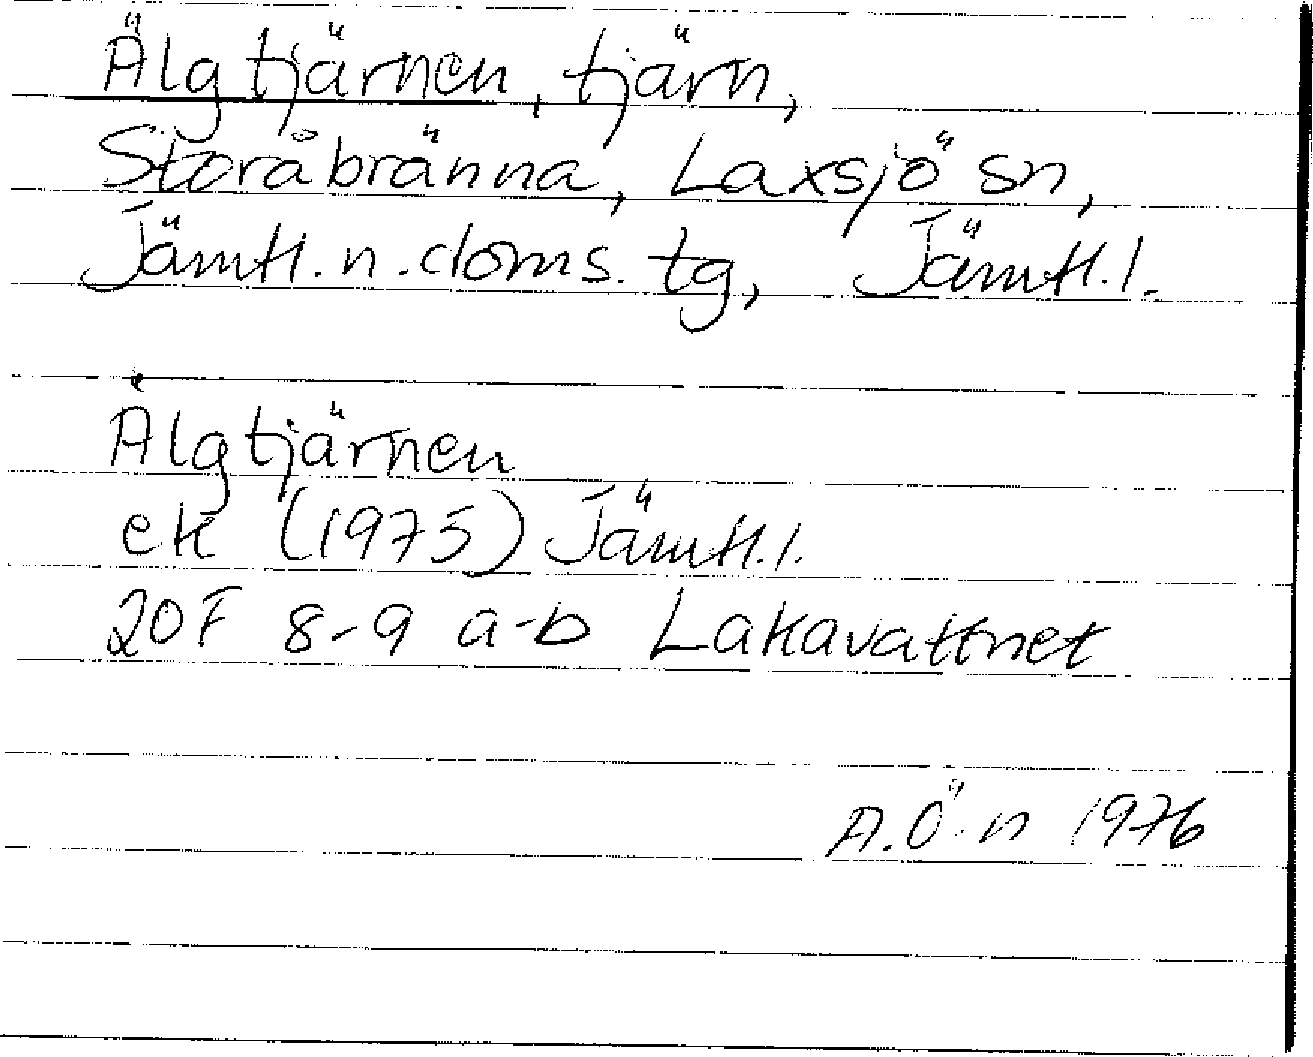 Älgtjärnen, tjärn,
Storåbränna, Laxsjö sn,
Jämtl. n. doms. tg, Jämtl. l.
Älgtjärnen
ek (1975) Jämtl. l.
20F 8-9 a-b Lakavattnet
A.Ö.n 1976